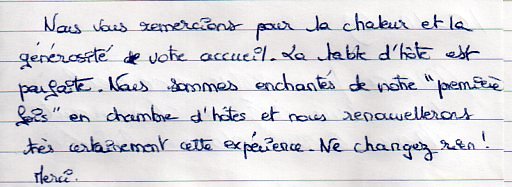 Nous vous remercions pour la chaleur et la
générosité de votre accueil. La table d'hôte est
parfaite. Nous sommes enchantés de notre "première
fois" en chambre d'hôtes et nous renouvellerons
très certainement cette expérience. Ne changez rien !
Merci.